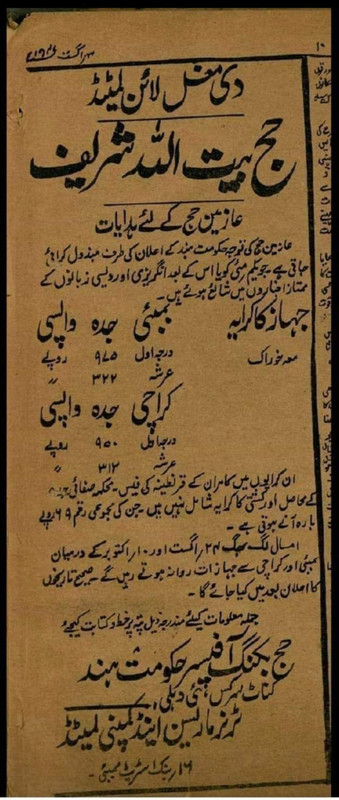 ۱۰
۳ اگست ۱۹۴۶ء
دی مغل لائن لمیٹڈ
حج بیت اللہ شریف
عازمین حج کے لئے ہدایات
عازمین حج کی توجہ حکومت ہند کے اعلان کی طرف مبذول کرائی
جاتی ہے۔ جو یکم مئی کو یا اس کے بعد انگریزی اور دیسی زبانوں کے
ممتاز اخباروں میں شائع ہوئے ہیں۔
جہاز کا کرایہ بمبئی جدہ واپسی
معہ خوراک درجہ اول ۹۷۵ روپے
عرشہ ۳۲۲ "
کراچی جدہ واپسی
درجہ اول ۹۵۰ روپے
عرشہ ۳۱۲ "
ان کرایوں میں کامران کے قرنطینہ کی فیس۔ محکمہ صفائی جدہ
کے محاصل اور کشتی کا کرایہ شامل نہیں ہیں۔ جن کی مجموعی رقم ۶۹ روپے
بارہ آنے ہوتی ہے۔
امسال لگ بھگ ۲۴ اگست اور ۱۰ اکتوبر کے درمیان
بمبئی اور کراچی سے جہازات روانہ ہوتے رہیں گے۔ صحیح تاریخوں
کا اعلان بعد میں کیا جائے گا۔
جملہ معلومات کیلئے مندرجہ ذیل پتہ پر خط و کتابت کیجئے
حج بکنگ آفیسر حکومت ہند
کناٹ سرکس، نئی دہلی،
ٹرنر ماریسن اینڈ کمپنی لمیٹڈ
۱۶ بینک اسٹریٹ بمبئی۔